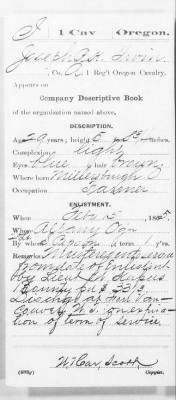 I | 1 Cav | Oregon.
Joseph
Co. A, 1 Reg't Oregon Cavalry.
Appears on
Company Descriptive Book
of the organization named above,
DESCRIPTION.
Age 29 years; height 5 feet inches.
Complexion light
Eyes blue; hair
Where born Millersburgh O
Occupation Farmer
ENLISTMENT.
When Feb 15, 1865.
Where Albany Ogn
By whom; term 1 y'rs.
Remarks: Mustered in
from date of Enlistment
by Lieut
Bounty pd $ 33 1/3.
Discharged at Fort Van-
couver W.T. on expira-
tion of term of service.
Scott
Copyist.